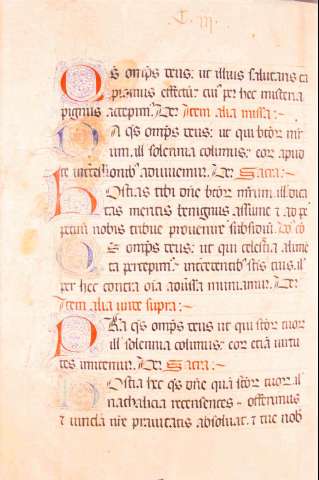 Qs omps deus: ut illius salutaris ca
piamus effectū: cuiꝰ per hec misteria
pignus accepimꝰ. Per Item alia missa:~
Da qs omps deus: ut qui btoꝝ mr̄
um .ill. solennia colimus: eoꝝ apud
te intercessionibꝰ adiuuemur. Per Sacra:~
Hostias tibi dn̄e btoꝝ mr̄um .ill. dica
tas meritis benignus assume: & ad per
petuū nobis tribue prouenire subsidiū. Po. cō
Qs omps deus: ut qui celestia alime
ta percepimꝰ: intercedentibꝰ sc̄is tuis .ill.
per hec contra oīa aduersa muniamur. Per
Item alia unde supra:~
Da qs omps deus ut qui sc̄oꝝ tuoꝝ
.ill. solennia colimus: eoꝝ etiā uirtu
tes imitemur. Per Sacra:~
Hostia hec qs dn̄e quā sc̄oꝝ tuoꝝ .ill.
nathalicia recensentes offerimus
& uincla nr̄e prauitatis absoluat: & tue nob